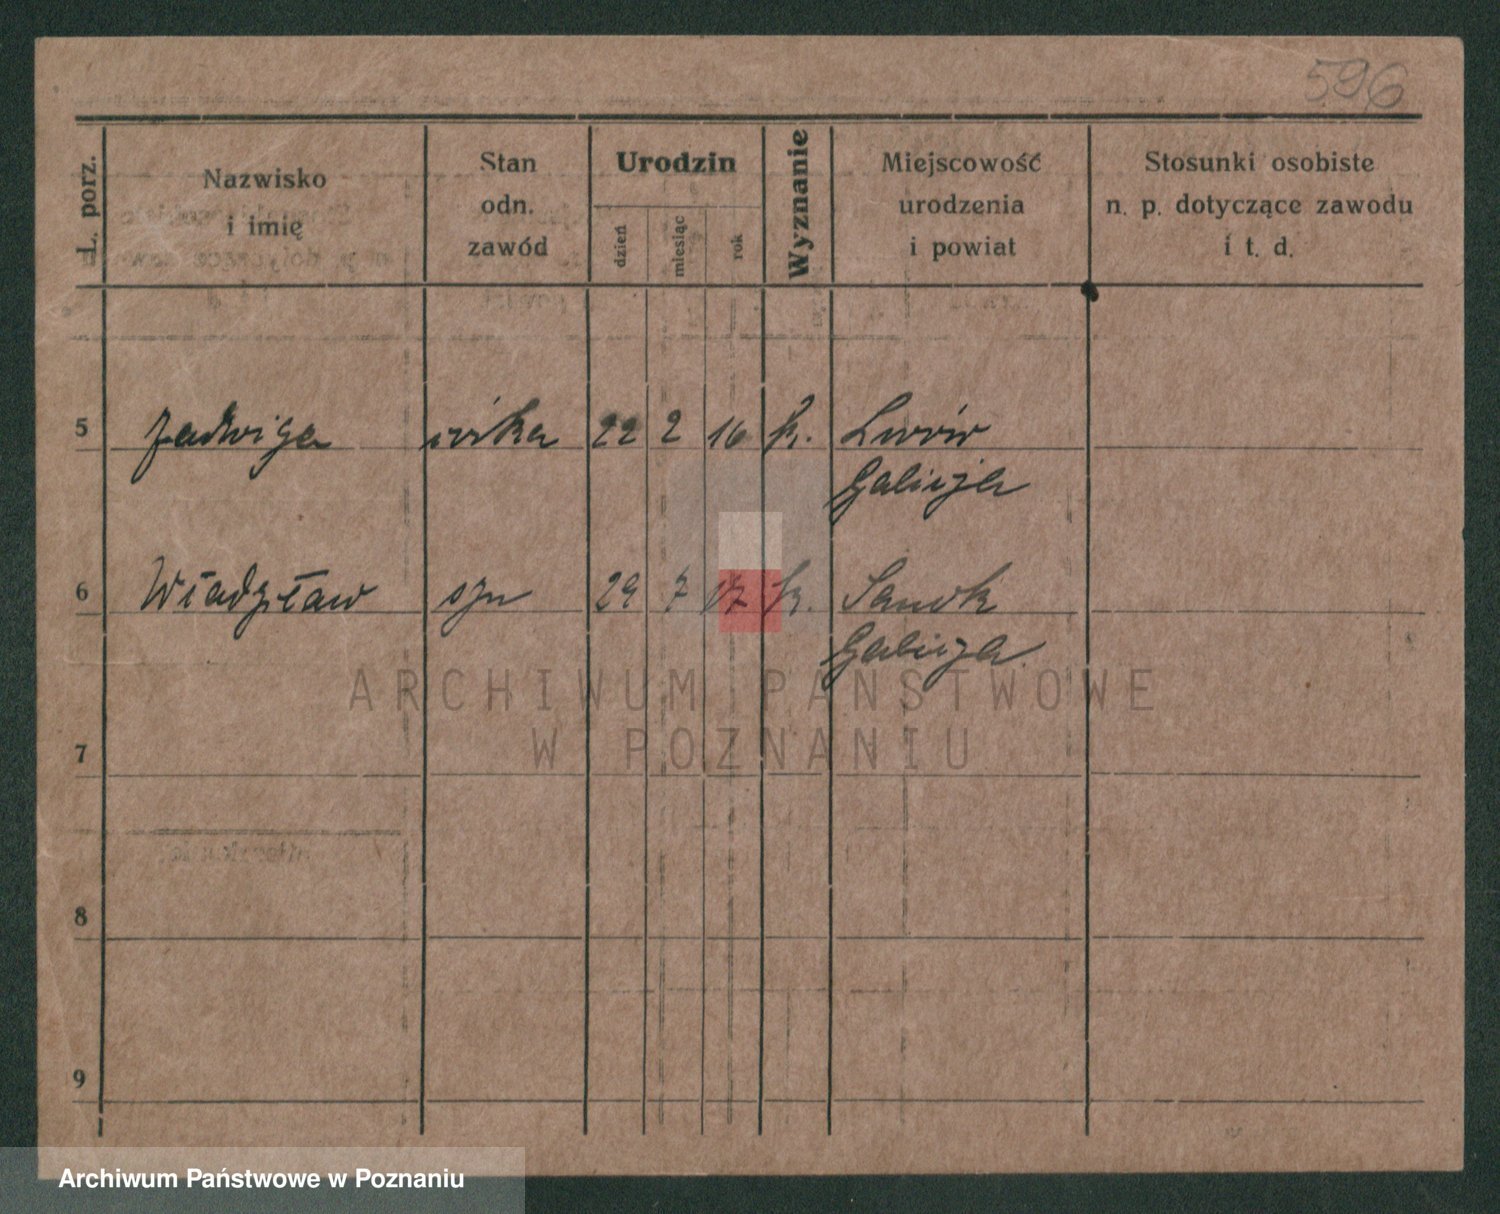 596
L. porz.
Nazwisko
i imię
Stan
odn.
zawód
Urodzin
dzień
miesiąc
rok
Wyznanie
Miejscowość
urodzenia
i powiat
Stosunki osobiste
n. p. dotyczące zawodu
i t. d.
5 Jadwiga córka 22 2 16 k. Lwów
Galicja
6 Władysław syn 29 7 17 k. Sanok
Galicja
ARCHIWUM PAŃSTWOWE
W POZNANIU
7
8
9
Archiwum Państwowe w Poznaniu